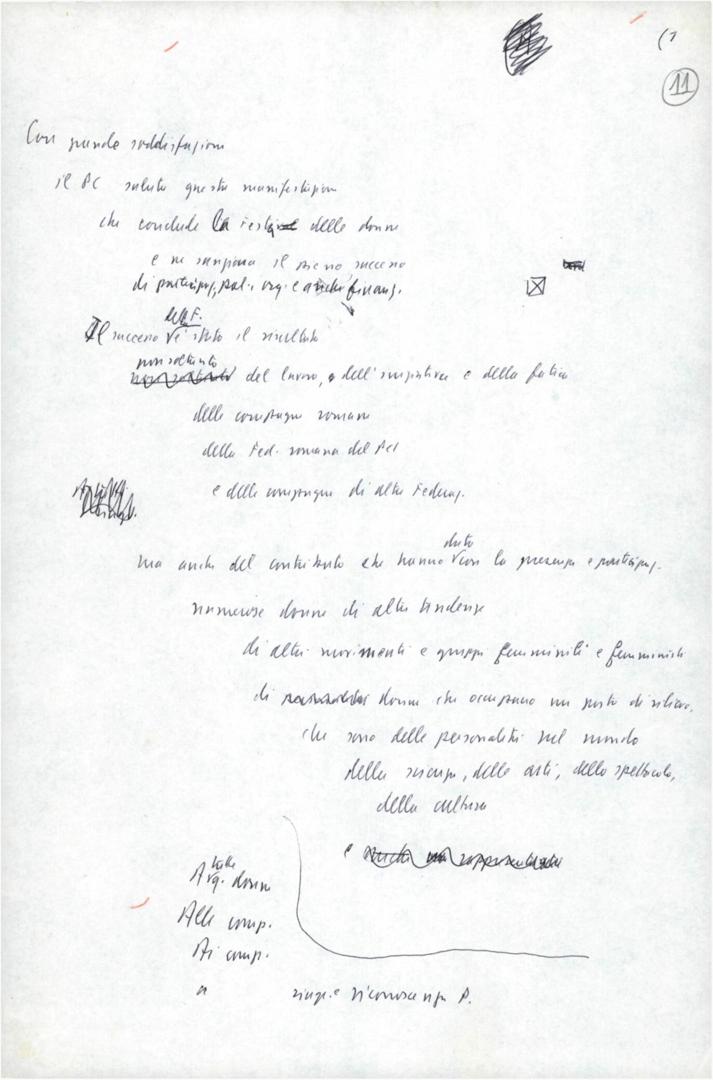 (1
11
Con grande soddisfazione
il PC saluta questa manifestazione
che conclude la festa delle donne
e ne sanziona il pieno successo
di particip., pol., org. e anche finanz.
della F.
Il successo è stato il risultato
non soltanto
del lavoro, e dell'iniziativa e della fatica
delle compagne romane
della Fed. romana del PCI
e delle compagne di altre Federaz.
dato
ma anche del contributo che hanno con la presenza e particip.
numerose donne di altre tendenze
di altri movimenti e gruppi femminili e femministi
di donne che occupano un posto di rilievo,
che sono delle personalità nel mondo
della scienza, delle arti, dello spettacolo,
della cultura
e
tutte
A q. donne
Alle comp.
Ai comp.
a
ringr. e riconoscenza P.